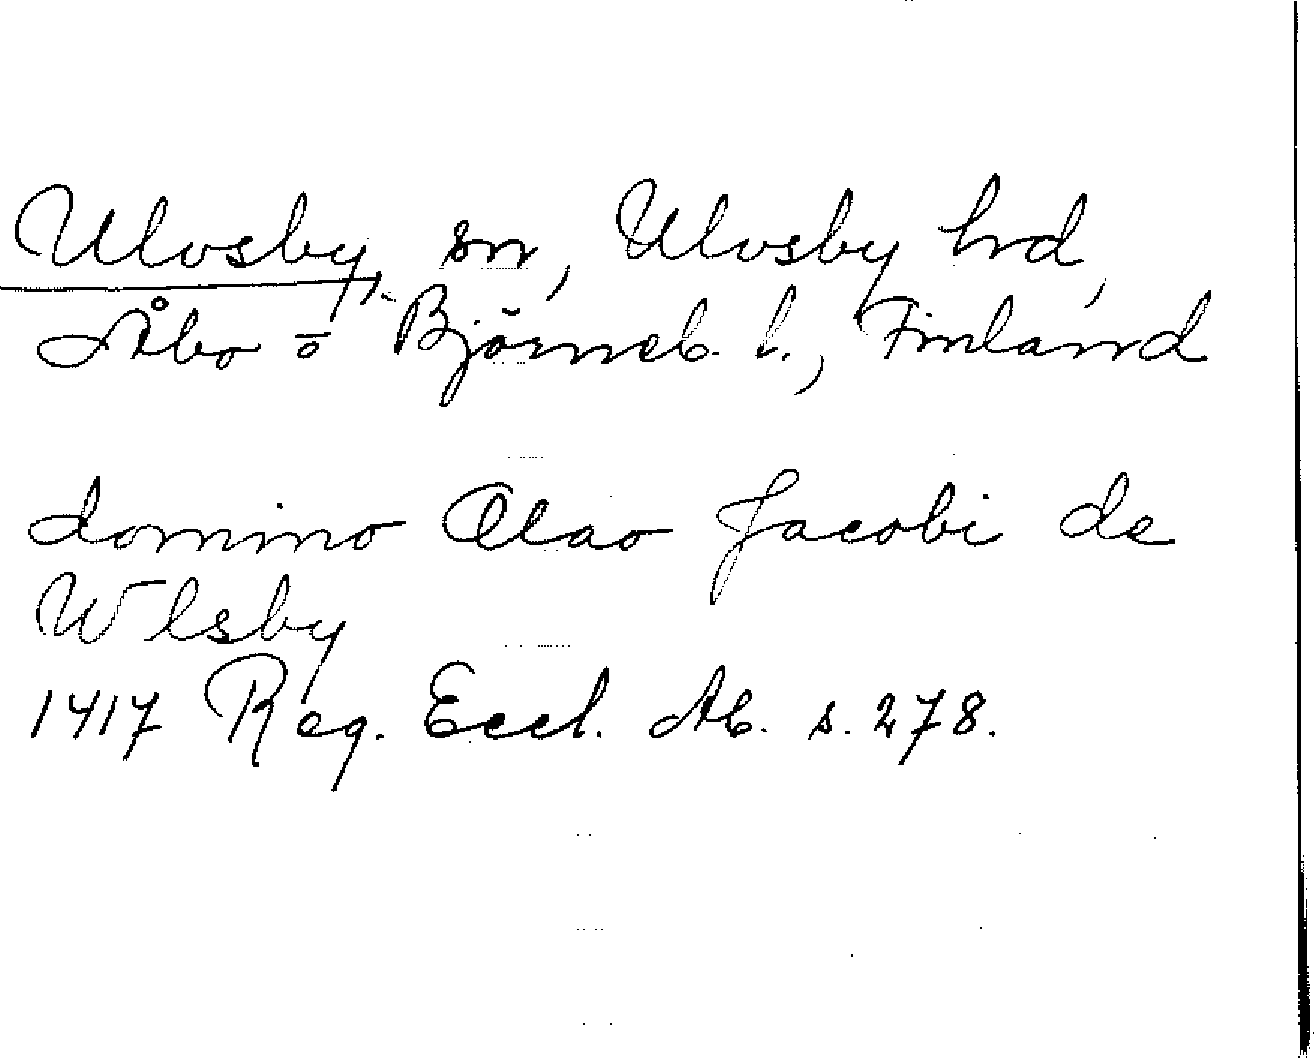 Ulvsby, sn, Ulvsby hrd,
Åbo o Björneb. l., Finland
domino Olao Jacobi de
Wlsby
1417 Reg. Eccl. Ab. s. 278.